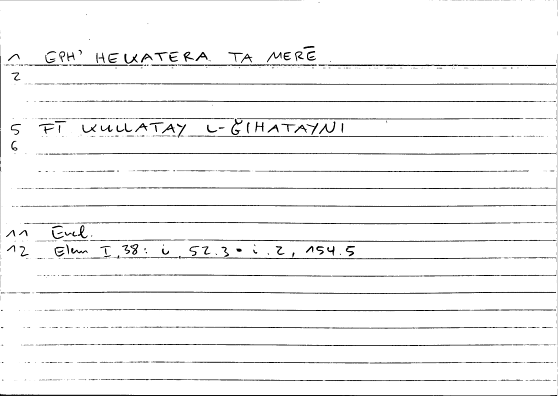 1 EPH' HEKATERA TA MERĒ
2
5 FĪ KULLATAY L-ǦIHATAYNI
6
11 Eucl.
12 Elem I,38: i, 52.3 • i.2, 154.5